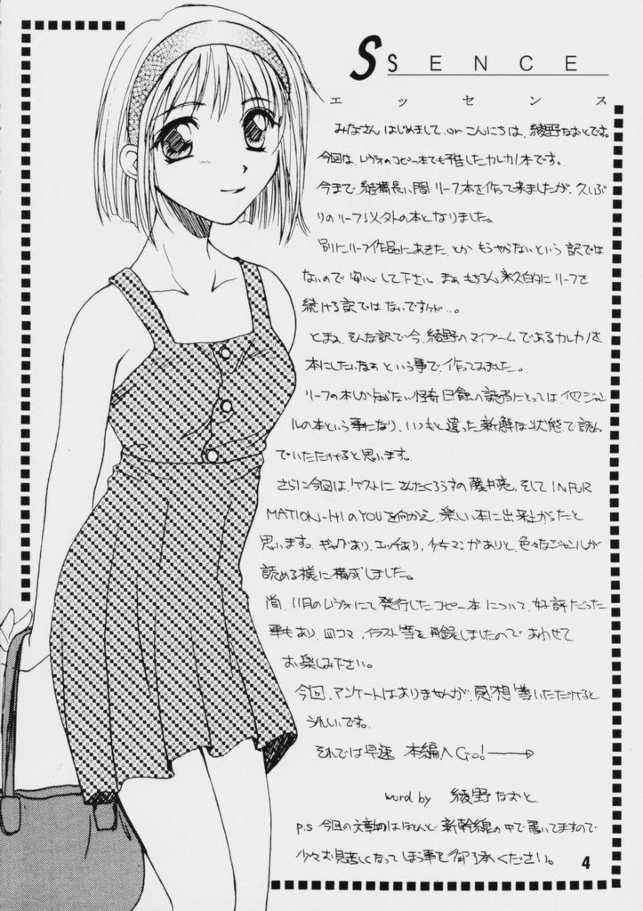 SSENCE
エッセンス
みなさんはじめまして、orこんにちは、綾野なおとです。
今回は、レヴォのコピー本でも予告したカレカノ本です。
今まで、結構長い間リーフ本を作って来ましたが、久しぶ
りのリーフ以外の本となりました。
別にリーフ作品にあきたとかもうやらないという訳では
ないので安心して下さい。まぁもちろん永久的にリーフを
続ける訳ではないですが…。
とまぁ、そんな訳で今、綾野のマイブームであるカレカノを
本にしたいなぁという事で、作ってみました。
リーフの本しか 怪奇日録の読者にとっては、他ジャン
ルの本という事になり、いつもと違った新鮮な状態で読ん
でいただけると思います。
さらに今回は、ゲストに の藤井亮、そしてINFOR
MATION-HIのYOUを向かえ、楽しい本に出来上がったと
思います。ギャグあり、エッチあり、少女マンガありと、色々なジャンルが
読める様に構成しました。
尚、11月のレヴォにて発行したコピー本について、好評だった
事もあり、四コマ、イラスト等を再録しましたので、あわせて
お楽しみ下さい。
今回、アンケートはありませんが、感想等いただけると
うれしいです。
それでは早速 本編へGo!→
word by 綾野なおと
P.S 今回の文章 はほとんど新幹線の中で書いてますので
少々お見苦しくなってしまう事を御了承ください。
4